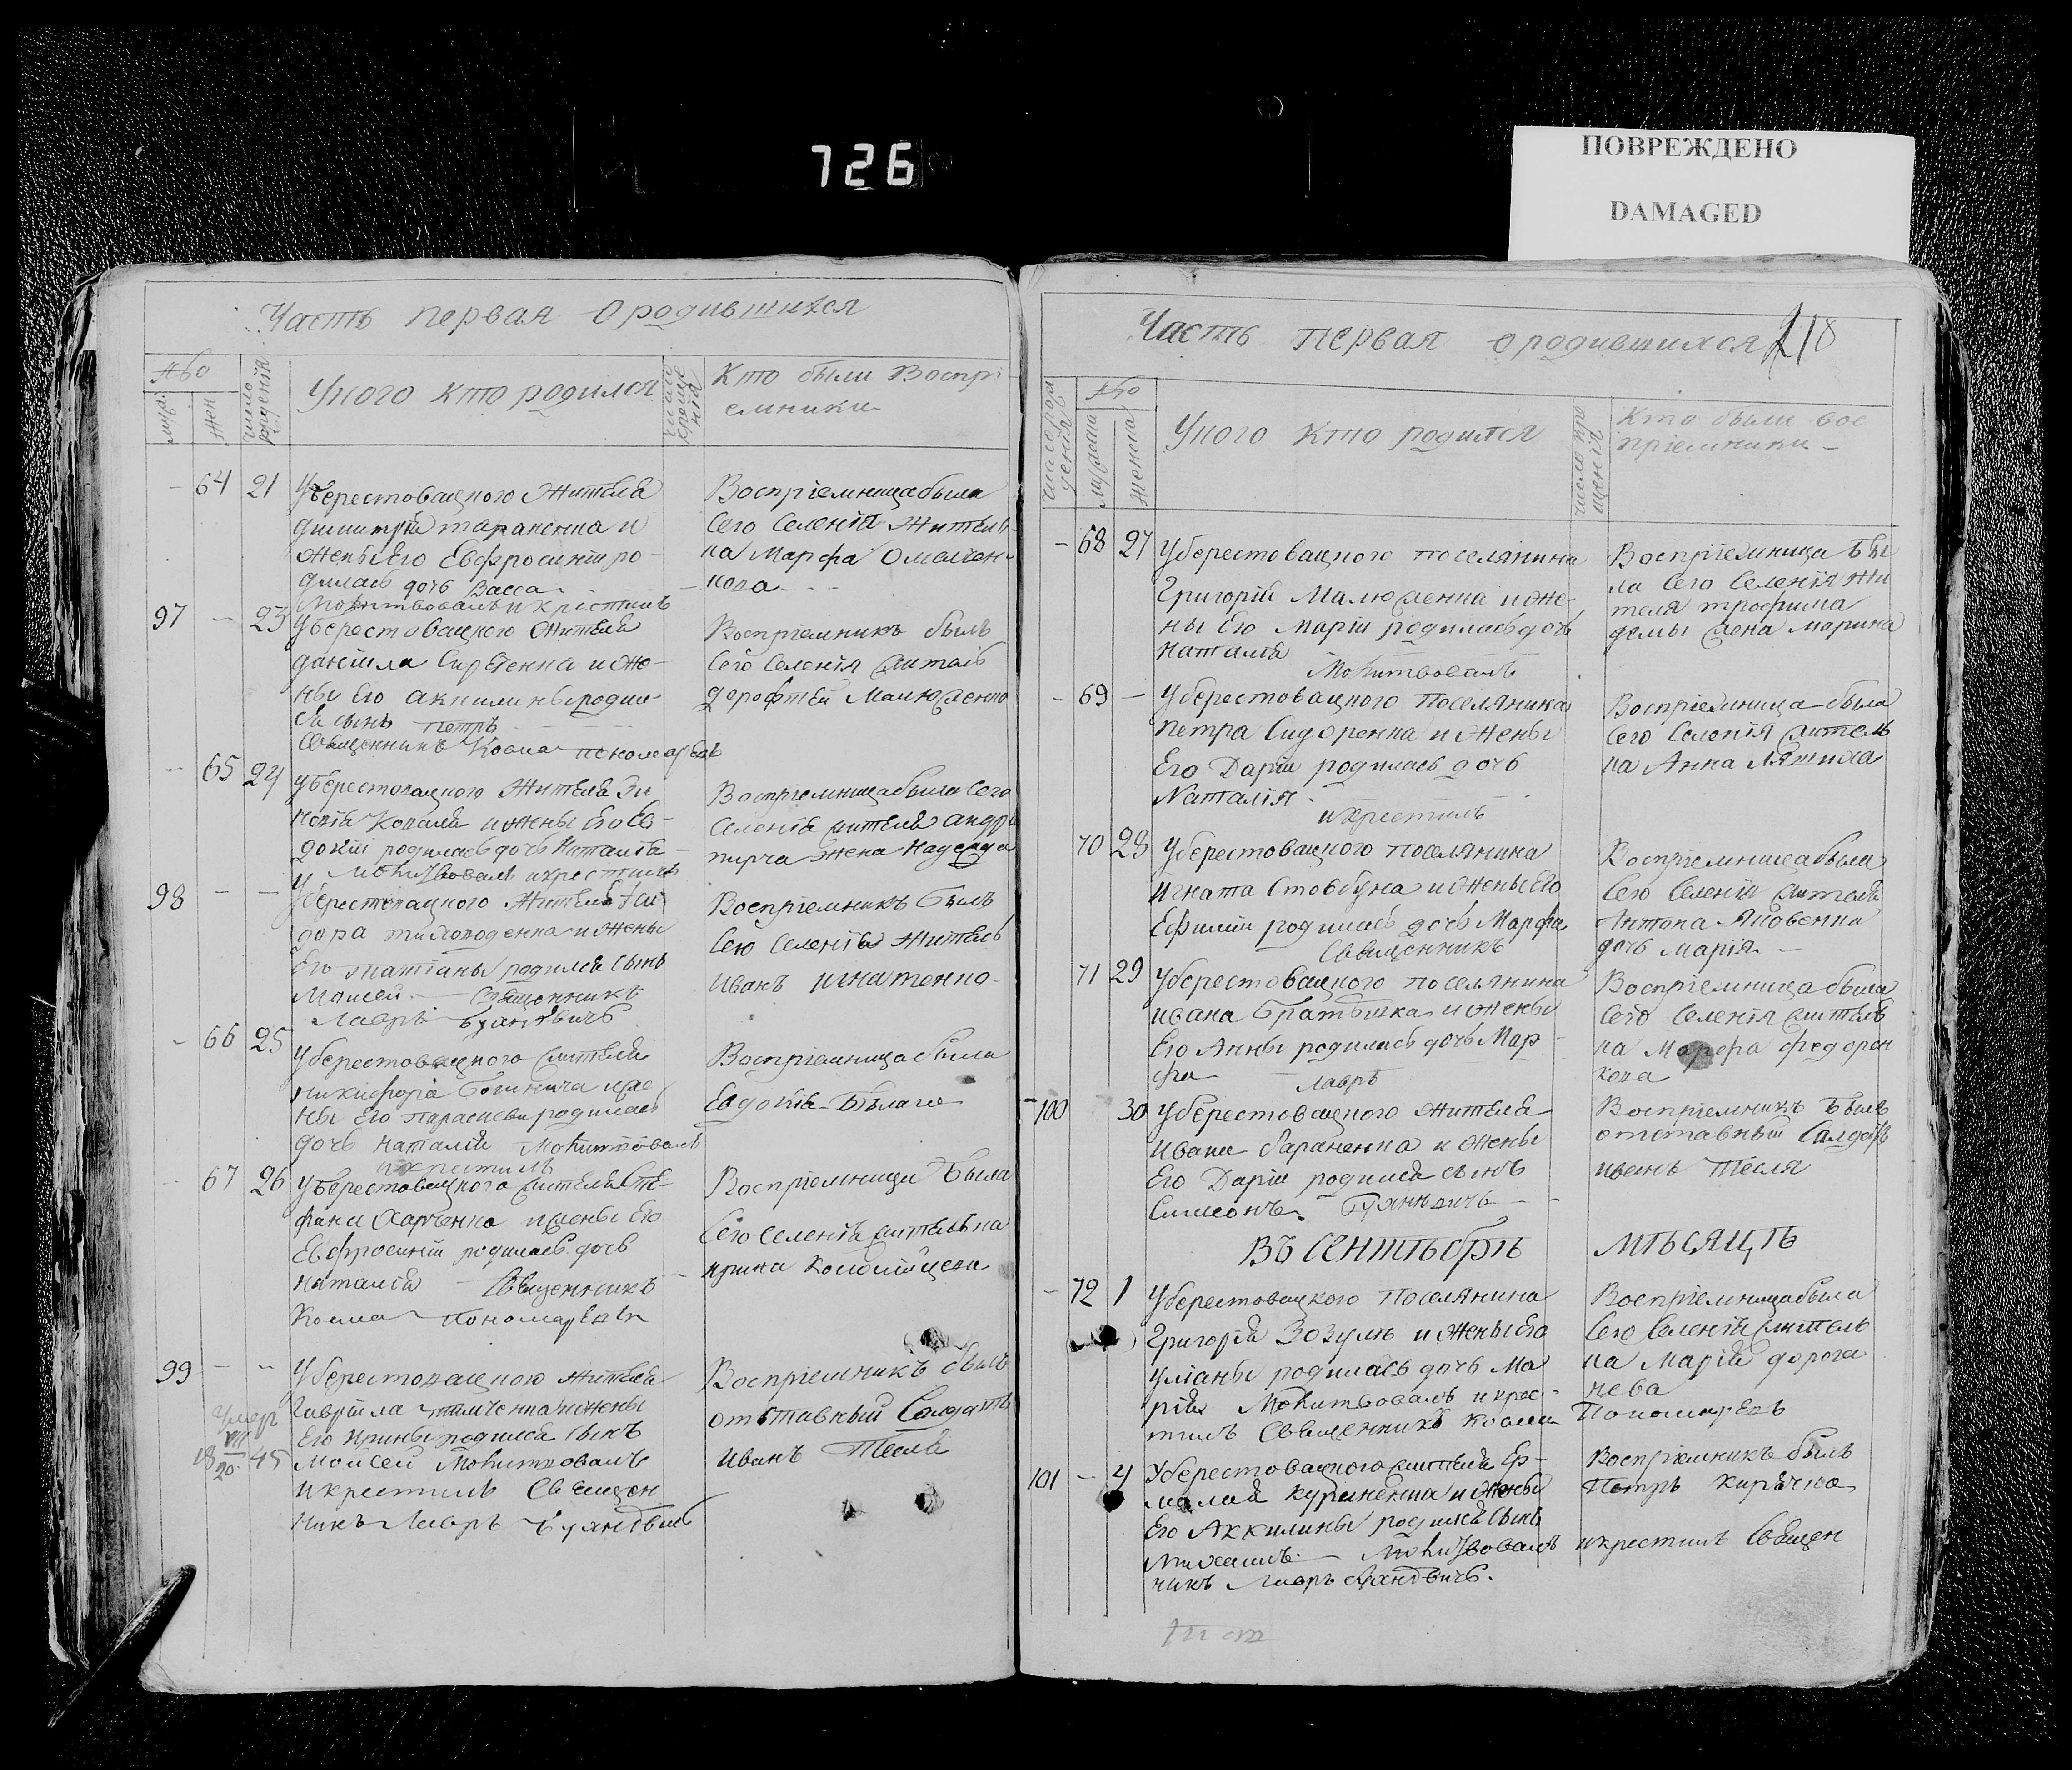 726
ПОВРЕЖДЕНО
DAMAGED
Часть первая о родившихся
№
муж.
жен
число рождения
У кого кто родился
число крещения
Кто были Воспрі-
емники
64 21 У берестовацкого жителя
димитрія тараненка и
жены его Евфросиніи ро-
дилась дочь Васса
молитвовалъ и крестилъ
Воспріемница была
сего селенія житель-
ка Марфа Омелчен-
кова
97 - 23 У берестовацкого жителя
даніила Сергіенка и же-
ны его акилины родил-
ся сынъ петръ
священникъ Косма пономаревъ
Воспріемникъ былъ
сего селенія житель
дорофтей Малюженко
65 24 У берестовацкого жителя
Коваля и жены его Ев-
докіи родилась дочь Наталія
молитвовалъ и крестилъ
Воспріемница была сего
селенія жителя андрея
жена Надежда
98 - - У берестовацкого жителя
дора и жены
его татіаны родился сынъ
Моисей. Священникъ
Лавръ
Воспріемникъ былъ
сего селенія житель
иванъ игнатенко
66 25 У берестовацкого жителя
никифора и же-
ны его параскеви родилась
дочь наталія молитвовалъ
и крестилъ
Воспріемница была
Евдокія Бѣлаго
67 26 У берестовацкого жителя Сте-
фана Харченка и жены его
Евфросиніи родилась дочь
наталія Священникъ
Косма Пономаревъ
Воспріемница была
сего селенія жителька
ирина Коломійцева
99 - - У берестовацкого жителя
Гавріила и жены
его ирины родился сынъ
Моисей молитвовалъ
и крестилъ Священ
никъ Лавръ
умеръ
18 VII/20 45
Воспріемникъ былъ
отставный Салдатъ
иванъ Тесля
Часть первая о родившихся 218
число рождения
№
мужеска
женска
У кого кто родился
число крещенія
Кто были вос
пріемники
- 68 27 У берестовацкого поселянина
Григорія Малюженка и же-
ны его Маріи родилась дочь
наталія
Молитвовалъ
Воспріемница бы
ла сего селенія жи
теля трофима
демы жена марина
- 69 - У берестовацкого поселянина
петра Сидоренка и жены
его Даріи родилась дочь
Наталія
и крестилъ
Воспріемница была
сего селенія житель
ка Анна Ляшиха
70 28 У берестовацкого поселянина
игната Стовбуна и жены его
Ефиміи родилась дочь Марфа
Священникъ
Воспріемница была
сего селенія жителя
Антона Яковенка
дочь марія
71 29 У берестовацкого поселянина
ивана и жены
его Анны родилась дочь Мар-
фа Лавръ
Воспріемница была
сего селенія житель
ка Марфа федорен
кова
100 30 У берестовацкого жителя
ивана бараненка и жены
его Даріи родился сынъ
Симеонъ
Воспріемникъ былъ
отставный Салдатъ
иванъ Тесля
Въ сентябрѣ мѣсяцѣ
- 72 1 У берестовацкого поселянина
Григорія Зозулѣ и жены его
уліаны родилась дочь Ма
рія Молитвовалъ и крес-
тилъ Священникъ Косма Пономаревъ
Воспріемница была
сего селенія житель
ка Марія дорога
нева
101 - 4 У берестовацкого жителя Ер-
молая Кураненка и жены
его Аккилины родился сынъ
михаилъ. Молитвовалъ и крестилъ Священ
никъ Лавръ
Воспріемникъ былъ
Петръ Киричко